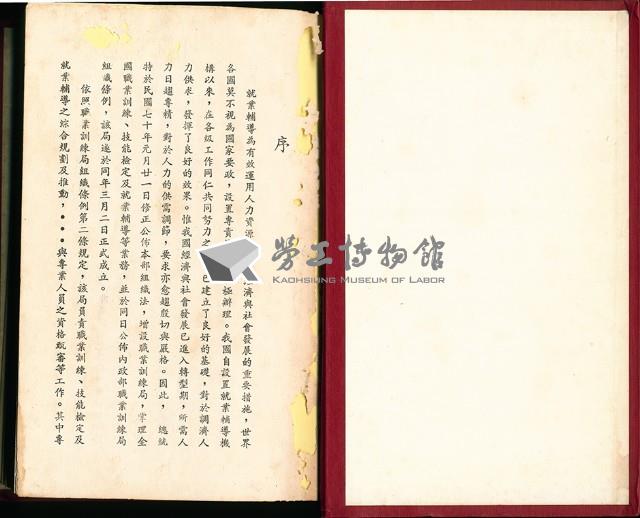 序
就業輔導為有效運用人力資源
經濟與社會發展的重要措施，世界
各國莫不視為國家要政，設置專責
極辦理。我國自設置就業輔導機
構以來，在各級工作同仁共同努力之
已建立了良好的基礎，對於調濟人
力供求，發揮了良好的效果。惟我國經濟與社會發展已進入轉型期，所需人
力日趨專精，對於人力的供需調節，要求亦愈趨殷切與嚴格。因此，　總統
特於民國七十年元月廿一日修正公佈本部組織法，增設職業訓練局，掌理全
國職業訓練、技能檢定及就業輔導等業務，並於同日公佈內政部職業訓練局
組織條例，該局遂於同年三月二日正式成立。
依照職業訓練局組織條例第二條規定，該局負責職業訓練、技能檢定及
就業輔導之綜合規劃及推動，•••與專業人員之資格甄審等工作。其中專
勞工博物館
KAOHSIUNG MUSEUM OF LABOR